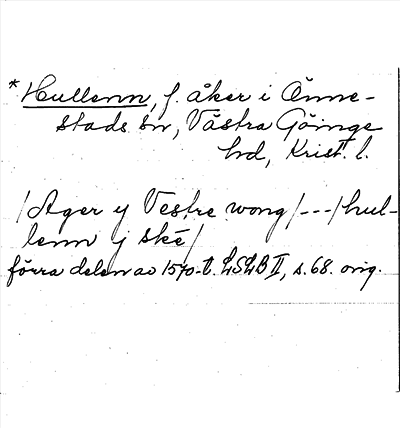 *Hullenn, f. åker i Önne-
stads sn, Västra Göinge
hd, Krist. l.
/Ager y Vestre wong/---/hul-
lenn y ske/
förra delen av 1570-t. LSLB II, s. 68. orig.